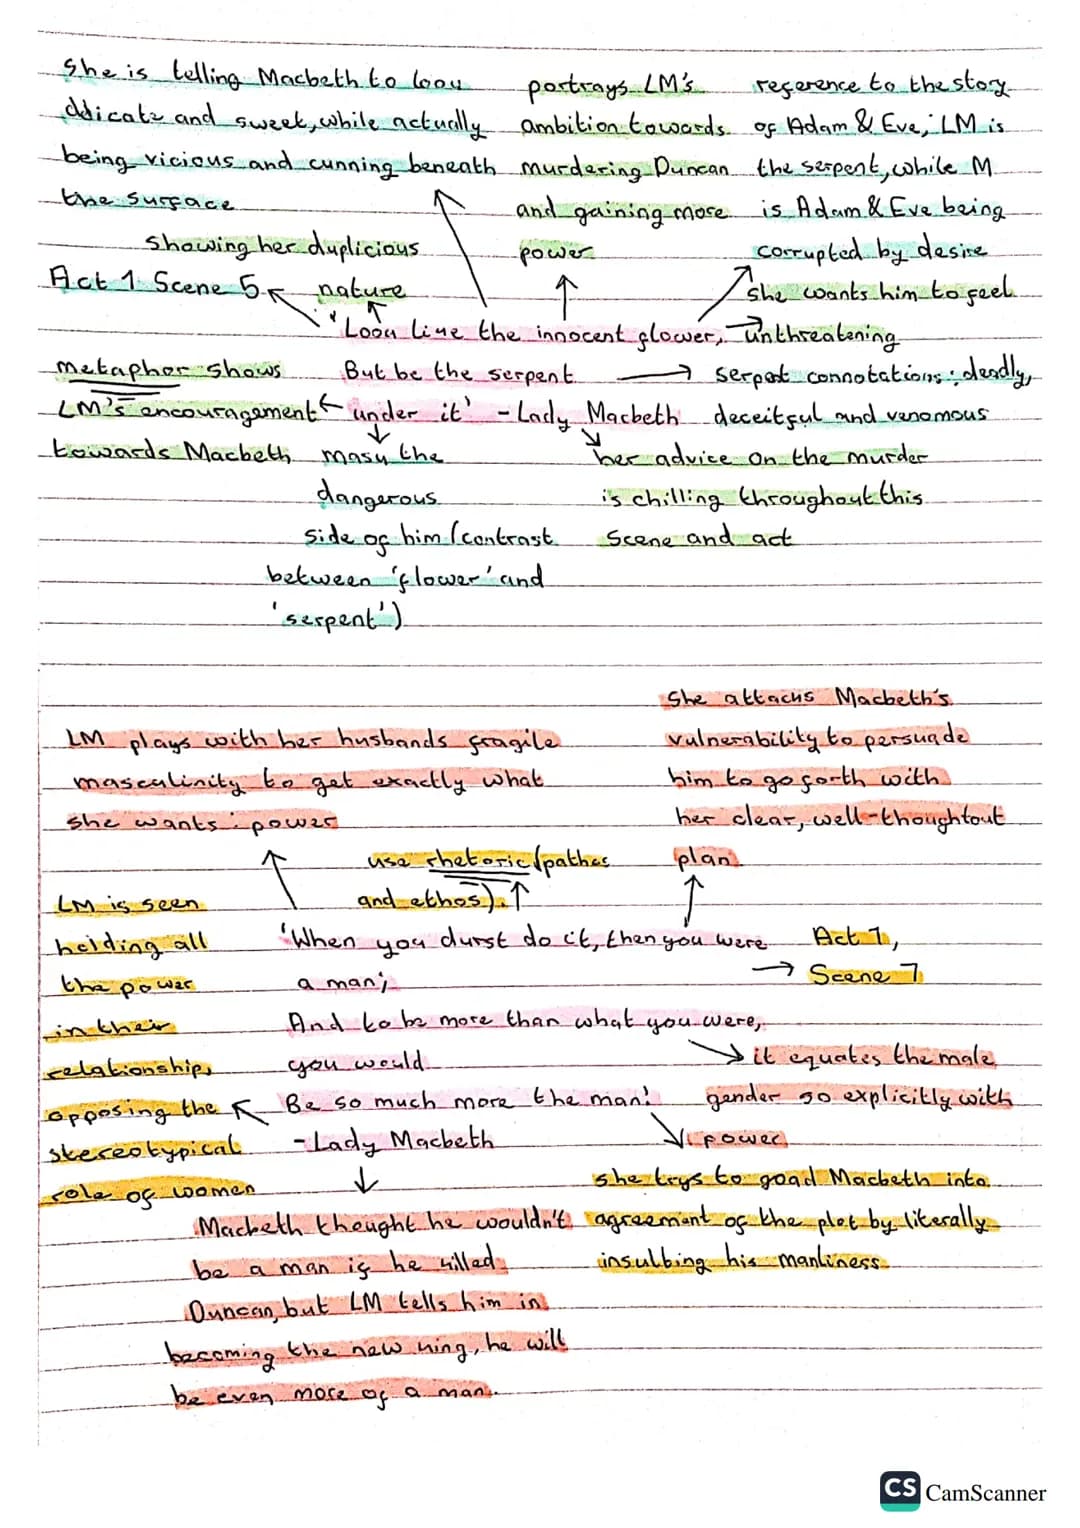 She is telling Macbeth to look
delicate and sweet, while actually
being vicious and cunning beneath
the surface
portrays LM's
ambition towards
murdering Duncan
and gaining more
power
reference to the story
of Adam & Eve; LM is
the serpent, while M
is Adam & Eve being
corrupted by desire
showing her duplicious
nature
Act 1 Scene 5
she wants him to feel
unthreatening
'Look like the innocent flower,
But be the serpent
under it' - Lady Macbeth
metaphor shows
LM's encouragement
towards Macbeth
serpent connotations: deadly,
deceitful and venomous
mask the
dangerous
side of him (contrast
between 'flower' and
'serpent')
her advice on the murder
is chilling throughout this
scene and act
LM plays with her husbands fragile
masculinity to get exactly what
she wants: power
She attacks Macbeth's
vulnerability to persuade
him to go forth with
her clear, well-thoughtout
plan
use rhetoric (pathos
and ethos).
LM is seen
holding all
the power
in their
relationship,
opposing the
stereotypical
role of women
'When you durst do it, then you were
a man;
And to be more than what you were,
you would
Be so much more the man!
- Lady Macbeth
Act 1,
Scene 7
it equates the male
gender so explicitly with
power
she trys to goad Macbeth into
agreement of the plot by literally
insulting his manliness
Macbeth thought he wouldn't
be a man if he killed
Duncan, but LM tells him in
becoming the new king, he will
be even more of a man.
CS CamScanner